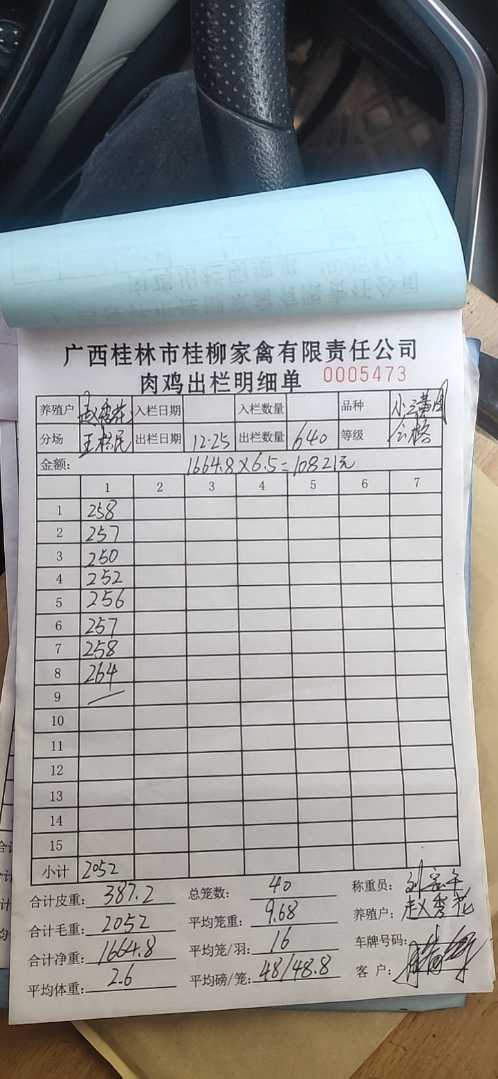 广西桂林市桂柳家禽有限责任公司
肉鸡出栏明细单 0005473
养殖户 赵秀花 入栏日期 入栏数量 品种
分场 出栏日期 12.25 出栏数量 640 等级 合格
金额: 1664.8×6.5=10821元
1 2 3 4 5 6 7
1 258
2 257
3 250
4 252
5 256
6 257
7 258
8 264
9
10
11
12
13
14
15
小计 2052
合计皮重: 387.2 总笼数: 40 称重员:
合计毛重: 2052 平均笼重: 9.68 养殖户: 赵秀花
合计净重: 1664.8 平均笼/羽: 16 车牌号码:
平均体重: 2.6 平均磅/笼: 48/48.8 客户: